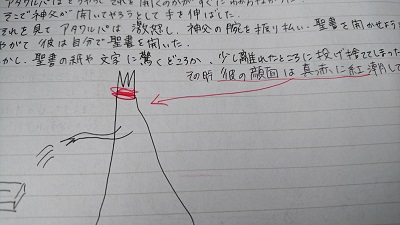 そこで神父が開いてやろうとして手を伸ばした。
それを見てアタワルパは激怒し、神父の腕を振り払い、聖書を開かせよう
やがて彼は自分で聖書を開いた。
かし、聖書の紙や文字に驚くどころか、少し離れたところに投げ捨ててしまった
その時 彼の顔面は真赤に紅潮して